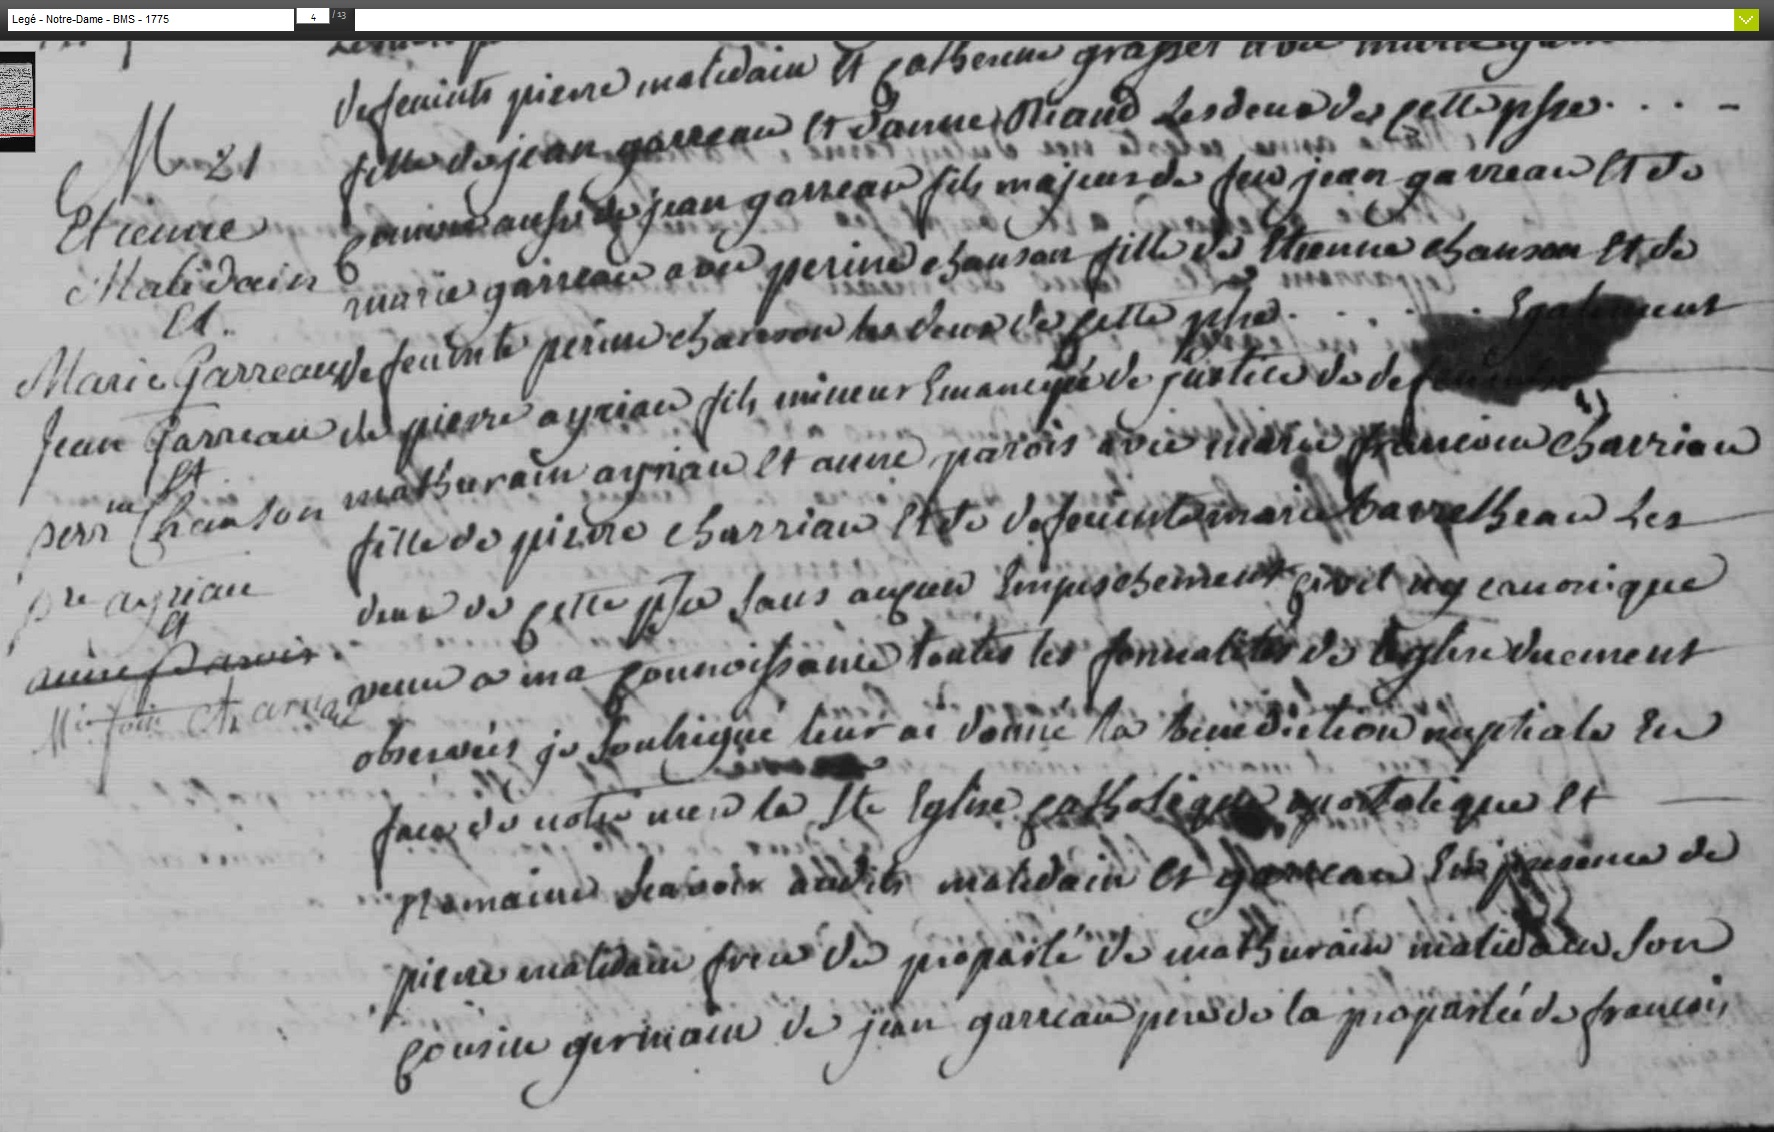 Legé - Notre-Dame - BMS - 1775
4 / 13
defeuints pierre malidain Et Catherine grasset avec marie
fille de jean garreau Et Janne Riaud Les deux de cette psse . . . -
Comme aussi de jean garreau fils majeur de feu jean garreau Et de
marie garreau avec perine chanson fille de Etienne chanson Et de
defeuinte perine chanson les deux de cette psse . . . . . Egalement
de pierre ayriau fils mineur Emancipé de justice de defeuints
mathurain ayriau Et anne parois avec marie francoise Charriau
fille de pierre charriau Et de defeuinte marie bavretheau Les
deux de cette psse sans aucun Empeschement Civil ny canonique
venu a ma Connoissance toutes les formalités de l'eglise duement
observées je soubsigné leur ai donné la benediction nuptiale En
face de notre mere la Ste Eglise Catholique apostolique Et
Romaine Scavoir audits malidain Et garreau En presence de
pierre malidain frere de proparlé de mathurain malidain son
Cousin germain de jean garreau pere de la proparlée de francois
M 21
Etienne
Malidain
Et.
Marie Garreau
Jean Garreau
Et
perrne Chanson
pre ayriau
et
anne Parois